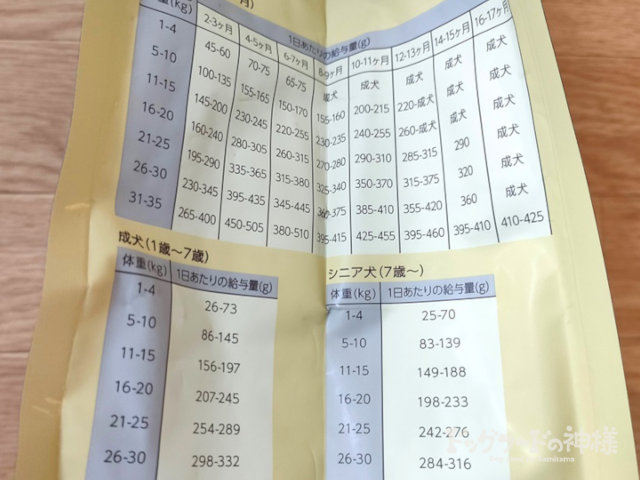 ヶ月)
体重(kg) 1日あたりの給与量(g)
2-3ヶ月 4-5ヶ月 6-7ヶ月 8-9ヶ月 10-11ヶ月 12-13ヶ月 14-15ヶ月 16-17ヶ月
1-4 45-60 70-75 65-75 成犬 成犬 成犬 成犬 成犬
5-10 100-135 155-165 150-170 155-160 200-215 220-成犬 成犬 成犬
11-15 145-200 230-245 220-255 230-235 240-255 260-成犬 成犬 成犬
16-20 160-240 280-305 260-315 270-280 290-310 285-315 290 成犬
21-25 195-290 335-365 315-380 325-340 350-370 315-375 320 成犬
26-30 230-345 395-435 345-445 360-375 385-410 355-420 360 成犬
31-35 265-400 450-505 380-510 395-415 425-455 395-460 395-410 410-425
成犬(1歳～7歳)
体重(kg) 1日あたりの給与量(g)
1-4 26-73
5-10 86-145
11-15 156-197
16-20 207-245
21-25 254-289
26-30 298-332
シニア犬(7歳～)
体重(kg) 1日あたりの給与量(g)
1-4 25-70
5-10 83-139
11-15 149-188
16-20 198-233
21-25 242-276
26-30 284-316
ドッグフードの神様